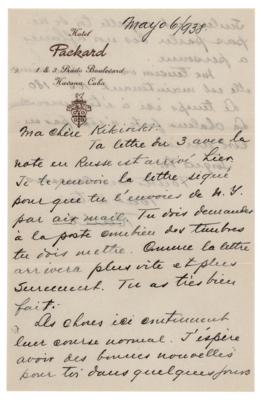 Mayo 6/938.
Hotel
Packard
1 & 3 Prado Boulevard
Havana, Cuba
Ma chère Kikiriki:
Ta lettre du 3 avec la
note en Russe est arrivé hier
Je te renvoie la lettre
pour que tu l'envoies de N.Y.
par air mail. Tu dois demander
à la poste combien des timbres
tu dois mettre. Comme la lettre
arrivera plus vite et plus
surement. Tu as très bien
fait.
Les choses ici continuent
leur course normal. J'espère
avoir des bonnes nouvelles
pour toi dans quelques jours